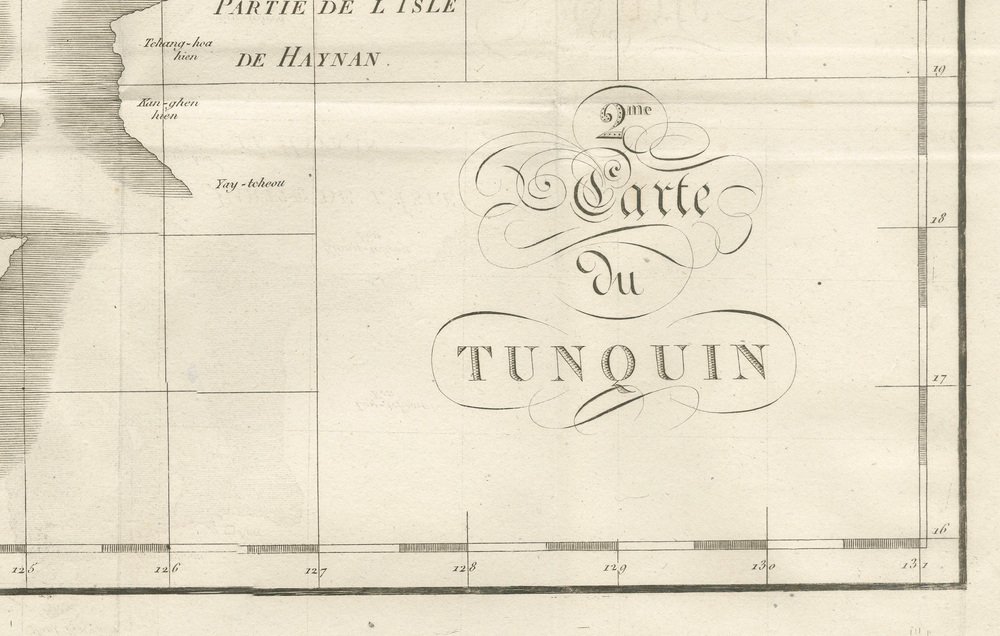 PARTIE DE L'ISLE
DE HAYNAN.
Tchang-hoa
hien
Kan-ghen
hien
Yay-tcheou
2me
Carte
du
TUNQUIN
19
18
17
16
125 126 127 128 129 130 131